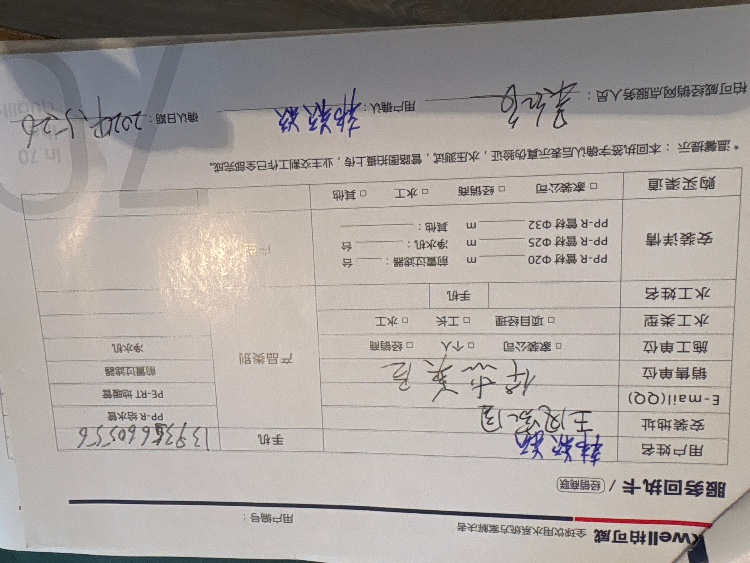 Kwell柏可威 全球饮用水系统方案解决者
用户编号：
服务回执卡 / 经销商联
用户姓名 韩颖颖 手机 13966660556
安装地址
PP-R 给水管
E-mail(QQ)
PE-RT 地暖管
销售单位
前置过滤器
施工单位 □ 家装公司 □ 个人 □ 经销商 产品类别
净水机
水工类型 □ 项目经理 □ 工长 □ 水工
水工姓名 手机
安装详情
PP-R 管材 Φ20 m 前置过滤器： 台
PP-R 管材 Φ25 m 净水机： 台
PP-R 管材 Φ32 m 其他：
购买渠道 □ 家装公司 □ 经销商 □ 水工 □ 其他
* 温馨提示：本回执签字确认后表示真伪验证，水压测试，管路图拍摄上传，业主交割工作已全部完成。
柏可威经销网点服务人员： 用户确认：韩颖颖 确认日期：2024.5.26